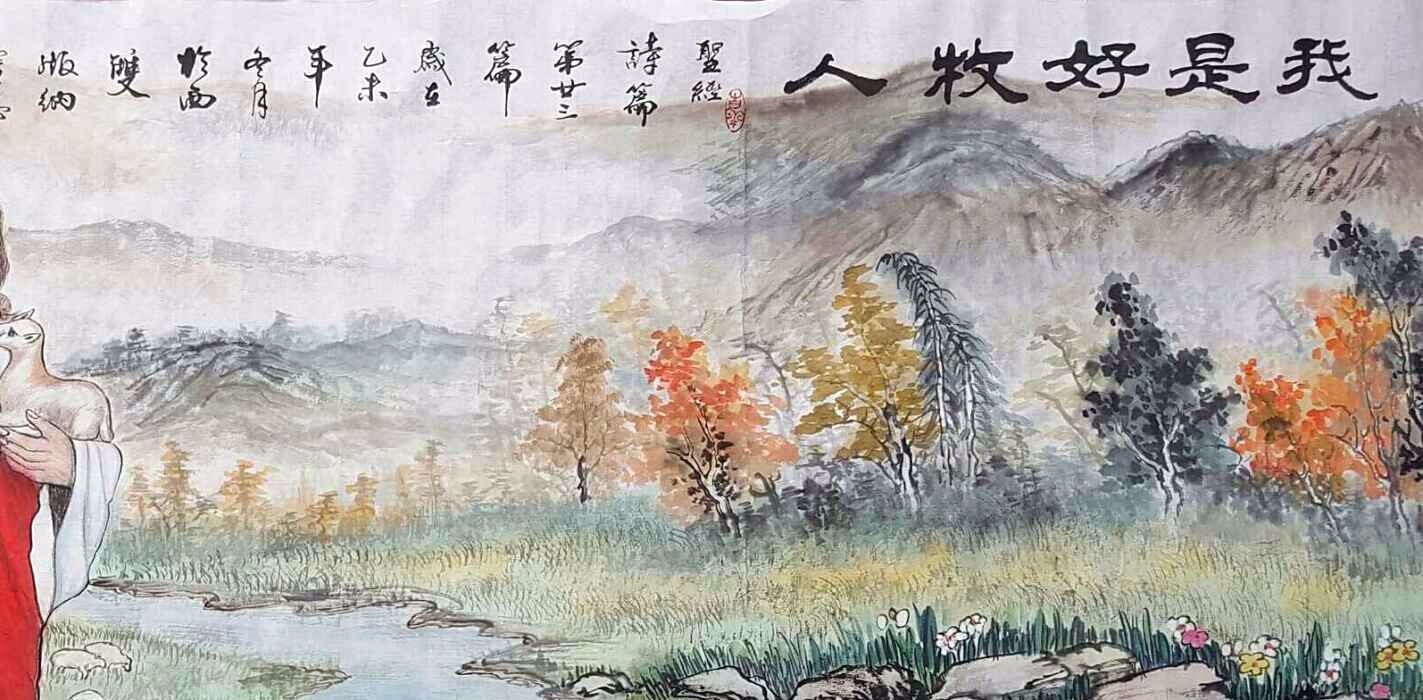 我是好牧人
聖經
詩篇
第廿三
篇
歲在
乙未
年
冬月
於西
雙
版納